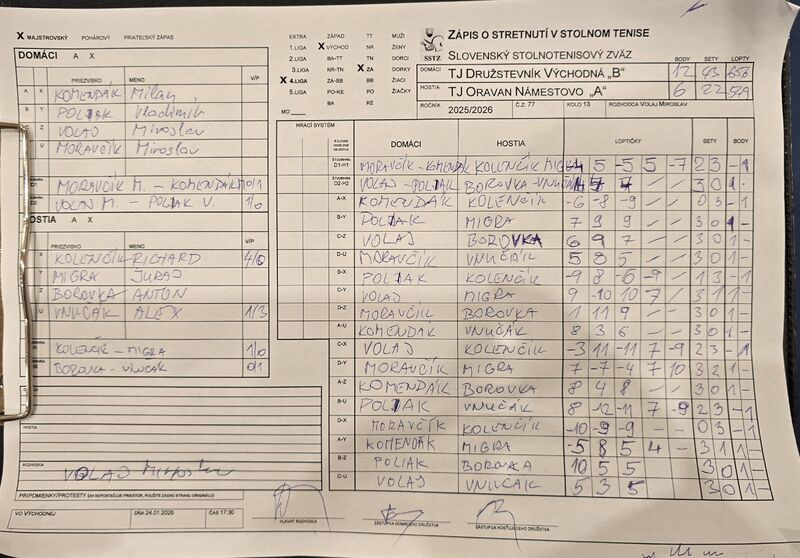 X MAJSTROVSKÝ POHÁROVÝ PRIATEĽSKÝ ZÁPAS
DOMÁCI A X
PRIEZVISKO MENO V/P
A X KOMENDÁK Milan
B Y POLIAK Vladimír
Z VOLAJ Miroslav
U MORAVČÍK Miroslav
D1 MORAVČÍK M. - KOMENDÁK M 0/1
D2 VOLAJ M. - POLIAK V. 1/0
HOSTIA A X
PRIEZVISKO MENO V/P
X KOLENČÍK RICHARD 4/0
Y MIGRA JURAJ
Z BOROVKA ANTON
U VNUČÁK ALEX 1/3
KOLENČÍK - MIGRA 1/0
BOROVKA - VNUČÁK 0/1
HOSTIA
ROZHODCA
VOLAJ Miroslav
PRIPOMIENKY/PROTESTY (AK NEPOSTAČUJE PRIESTOR, POUŽITE ZADNÚ STRANU ORIGINÁLU)
VO VÝCHODNEJ DŇA 24.01.2026 ČAS 17:30
HLAVNÝ ROZHODCA
ZÁSTUPCA DOMÁCEHO DRUŽSTVA
ZÁSTUPCA HOSŤUJÚCEHO DRUŽSTVA
EXTRA ZÁPAD TT MUŽI
1.LIGA X VÝCHOD NR ŽENY
2.LIGA BA-TT TN DORCI
3.LIGA NR-TN X ZA DORKY
X 4.LIGA ZA-BB BB ŽIACI
5.LIGA KE-PO PO ŽIAČKY
BA KE
MO
SSTZ
ZÁPIS O STRETNUTÍ V STOLNOM TENISE
SLOVENSKÝ STOLNOTENISOVÝ ZVÄZ
BODY SETY LOPTY
DOMÁCI TJ DRUŽSTEVNÍK VÝCHODNÁ „B" 12 43 656
HOSTIA TJ ORAVAN NÁMESTOVO „A" 6 22 549
ROČNÍK 2025/2026 Č.Z. 77 KOLO 13 ROZHODCA VOLAJ MIROSLAV
HRACÍ SYSTÉM DOMÁCI HOSTIA LOPTIČKY SETY BODY
D1-H1 MORAVČÍK - KOMENDÁK KOLENČÍK MIGRA 5 -5 5 -7 2 3 - 1
D2-H2 VOLAJ - POLIAK BOROVKA - VNUČÁK 7 / / 3 0 1 -
A-X KOMENDÁK KOLENČÍK -6 -8 -9 / / 0 3 - 1
B-Y POLIAK MIGRA 7 9 9 / / 3 0 1 -
C-Z VOLAJ BOROVKA 6 9 7 / / 3 0 1 -
D-U MORAVČÍK VNUČÁK 5 8 5 / / 3 0 1 -
B-X POLIAK KOLENČÍK -9 8 -6 -9 / 1 3 - 1
C-Y VOLAJ MIGRA 9 -10 10 7 / 3 1 1 -
D-Z MORAVČÍK BOROVKA 1 11 9 / / 3 0 1 -
A-U KOMENDÁK VNUČÁK 8 3 6 / / 3 0 1 -
C-X VOLAJ KOLENČÍK -3 11 -11 7 -9 2 3 - 1
D-Y MORAVČÍK MIGRA 7 -7 -4 7 10 3 2 1 -
A-Z KOMENDÁK BOROVKA 8 4 8 / / 3 0 1 -
B-U POLIAK VNUČÁK 8 -12 -11 7 -9 2 3 - 1
D-X MORAVČÍK KOLENČÍK -10 -9 -9 - - 0 3 - 1
A-Y KOMENDÁK MIGRA -5 8 5 4 - 3 1 1 -
B-Z POLIAK BOROVKA 10 5 5 3 0 1 -
C-U VOLAJ VNUČÁK 5 3 5 3 0 1 -